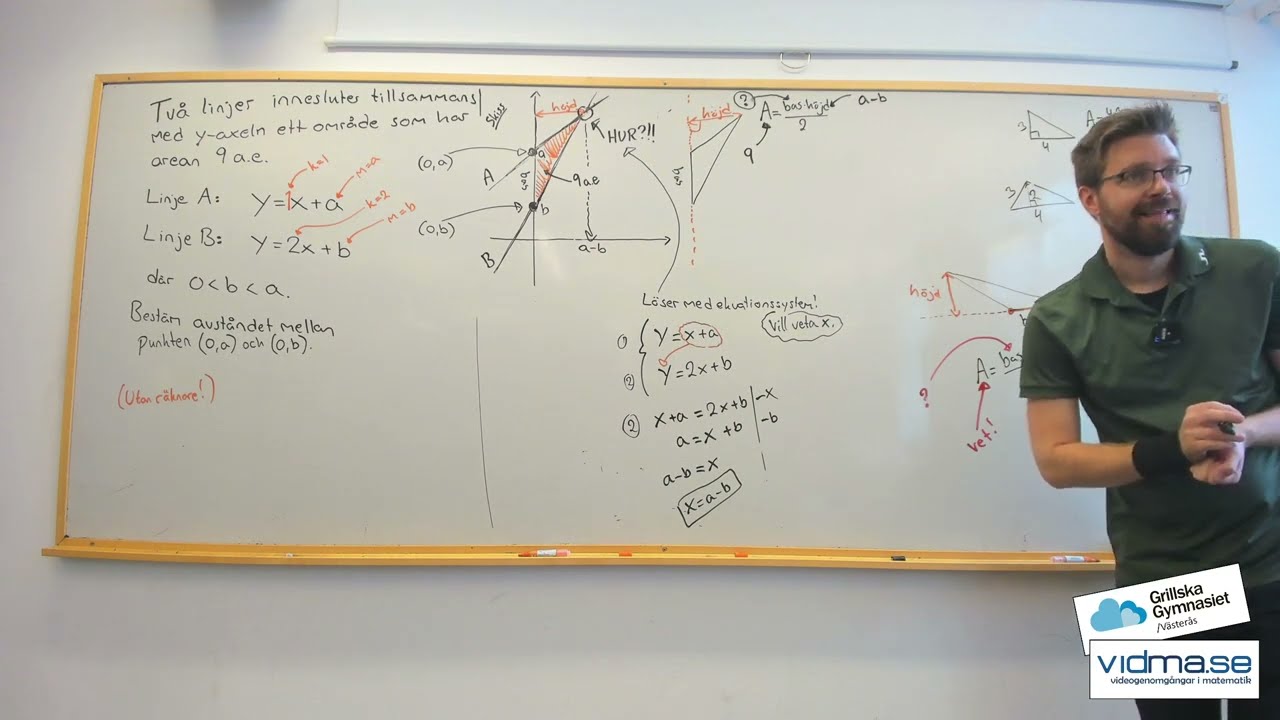 Två linjer inneslutes tillsammans
med y-axeln ett område som har
arean 9 a.e.
k=1
m=a
Linje A: y=1x+a
k=2
m=b
Linje B: y=2x+b
där 0<b<a.
Bestäm avståndet mellan
punkten (0,a) och (0,b).
(Utan räknare!)
Skiss
höjd
HUR?!!
(0,a)
a
A
bas
9ae
(0,b)
b
B
a-b
höjd
bas
?
A=bas·höjd/2
a-b
9
Löser med ekvationssystem!
Vill veta x.
① y=x+a
② y=2x+b
② x+a=2x+b | -x
a=x+b | -b
a-b=x
x=a-b
3
4
3
2
4
höjd
b
A=bas
?
vet!
Grillska
Gymnasiet
/Västerås
vidma.se
videogenomgångar i matematik